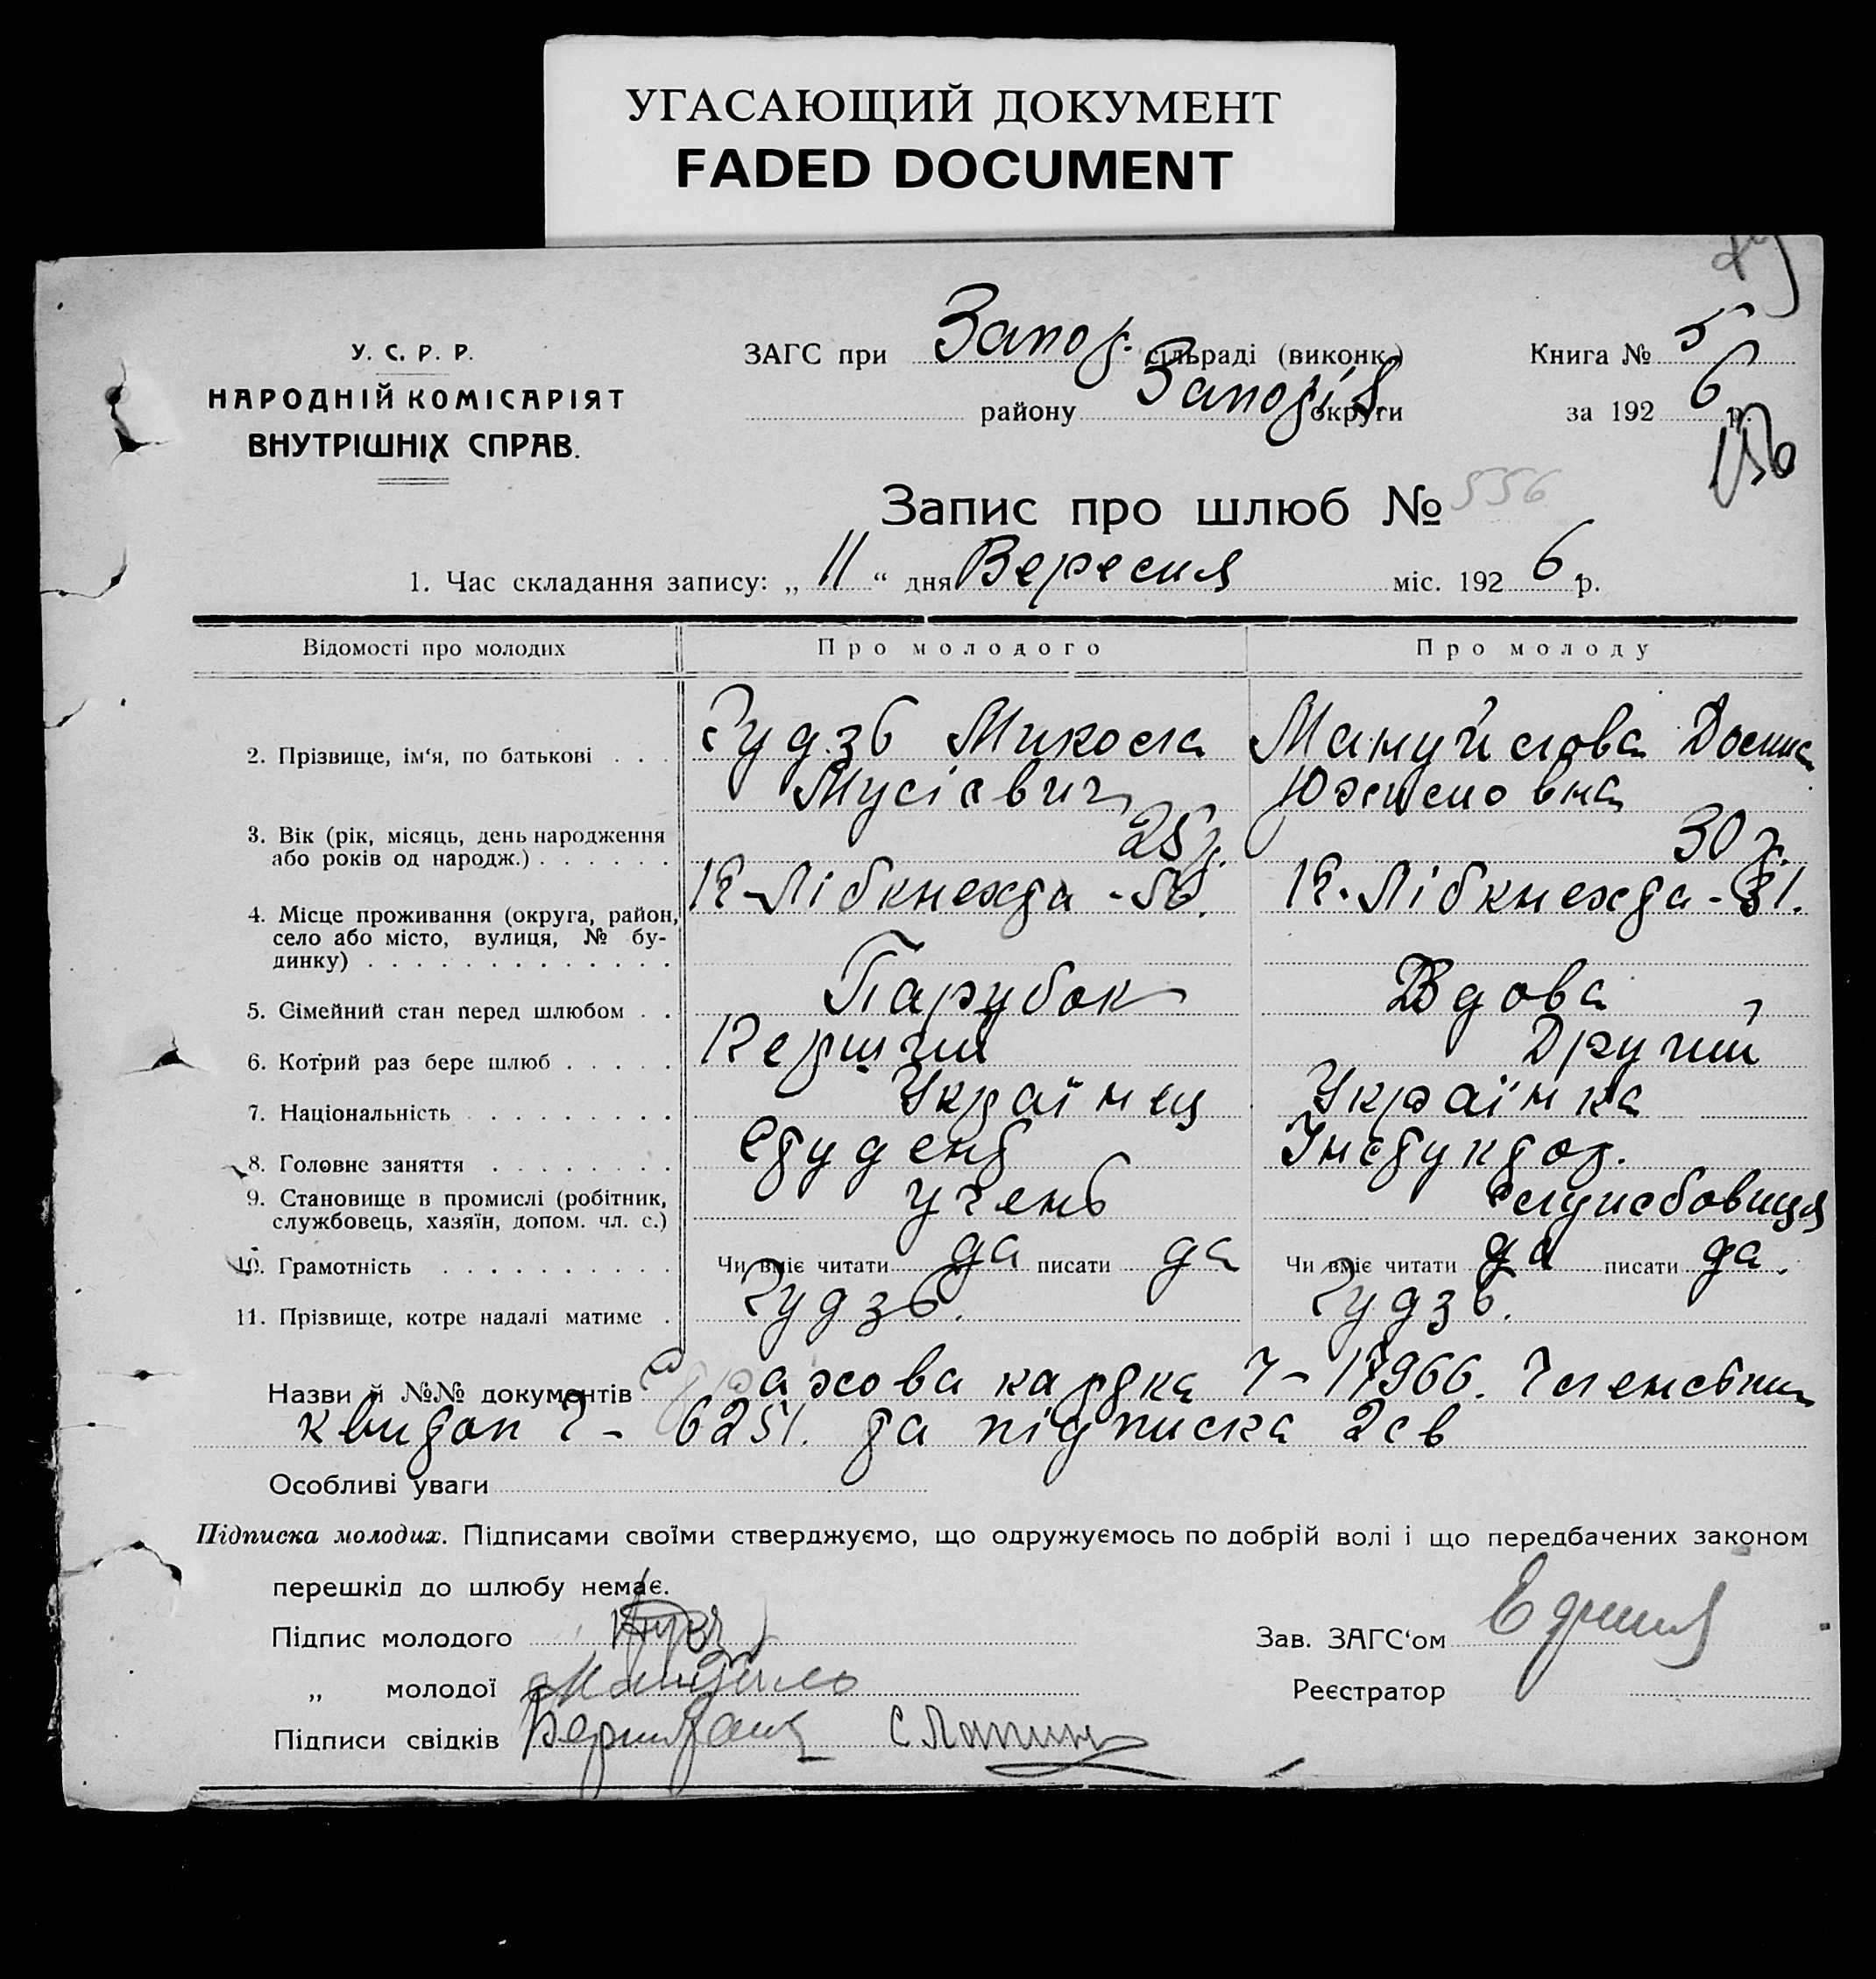 УГАСАЮЩИЙ ДОКУМЕНТ
FADED DOCUMENT
У. С. Р. Р.
НАРОДНІЙ КОМІСАРІЯТ
ВНУТРІШНІХ СПРАВ.
ЗАГС при Запор. сільраді (виконк.)
району Запоріж округи
Книга № 5
за 192 6 р.
156
Запис про шлюб № 556
1. Час складання запису: „ 11 “ дня Вересня міс. 192 6 р.
Відомості про молодих
Про молодого
Про молоду
2. Прізвище, ім‘я, по батькові . . .
Гудзь Микола
Мусієвич
Мануйлова
3. Вік (рік, місяць, день народження
або років од народж.) . . . . . .
25 р.
30 р.
4. Місце проживання (округа, район,
село або місто, вулиця, № бу-
динку) . . . . . . . . . . . . .
К-Лібкнехта -
К. Лібкнехта -
5. Сімейний стан перед шлюбом . .
Парубок
Вдова
6. Котрий раз бере шлюб . . . . .
Перший
Другий
7. Національність . . . . . . . . .
Українец
Українка
8. Головне заняття . . . . . . . .
Студент
Інструктор.
9. Становище в промислі (робітник,
службовець, хазяїн, допом. чл. с.)
учень
службовиця
10. Грамотність . . . . . . . . . .
Чи вміє читати да писати да
Чи вміє читати да писати да.
11. Прізвище, котре надалі матиме .
Гудзь.
Гудзь.
Назви й №№ документів Страхова картка Ч- 17966. Членський
квиток Ч - 6251. та підписка 2 св
Особливі уваги
Підписка молодих. Підписами своїми стверджуємо, що одружуємось по добрій волі і що передбачених законом
перешкід до шлюбу немає.
Підпис молодого
„ молодої
Підписи свідків
Зав. ЗАГС‘ом
Реєстратор